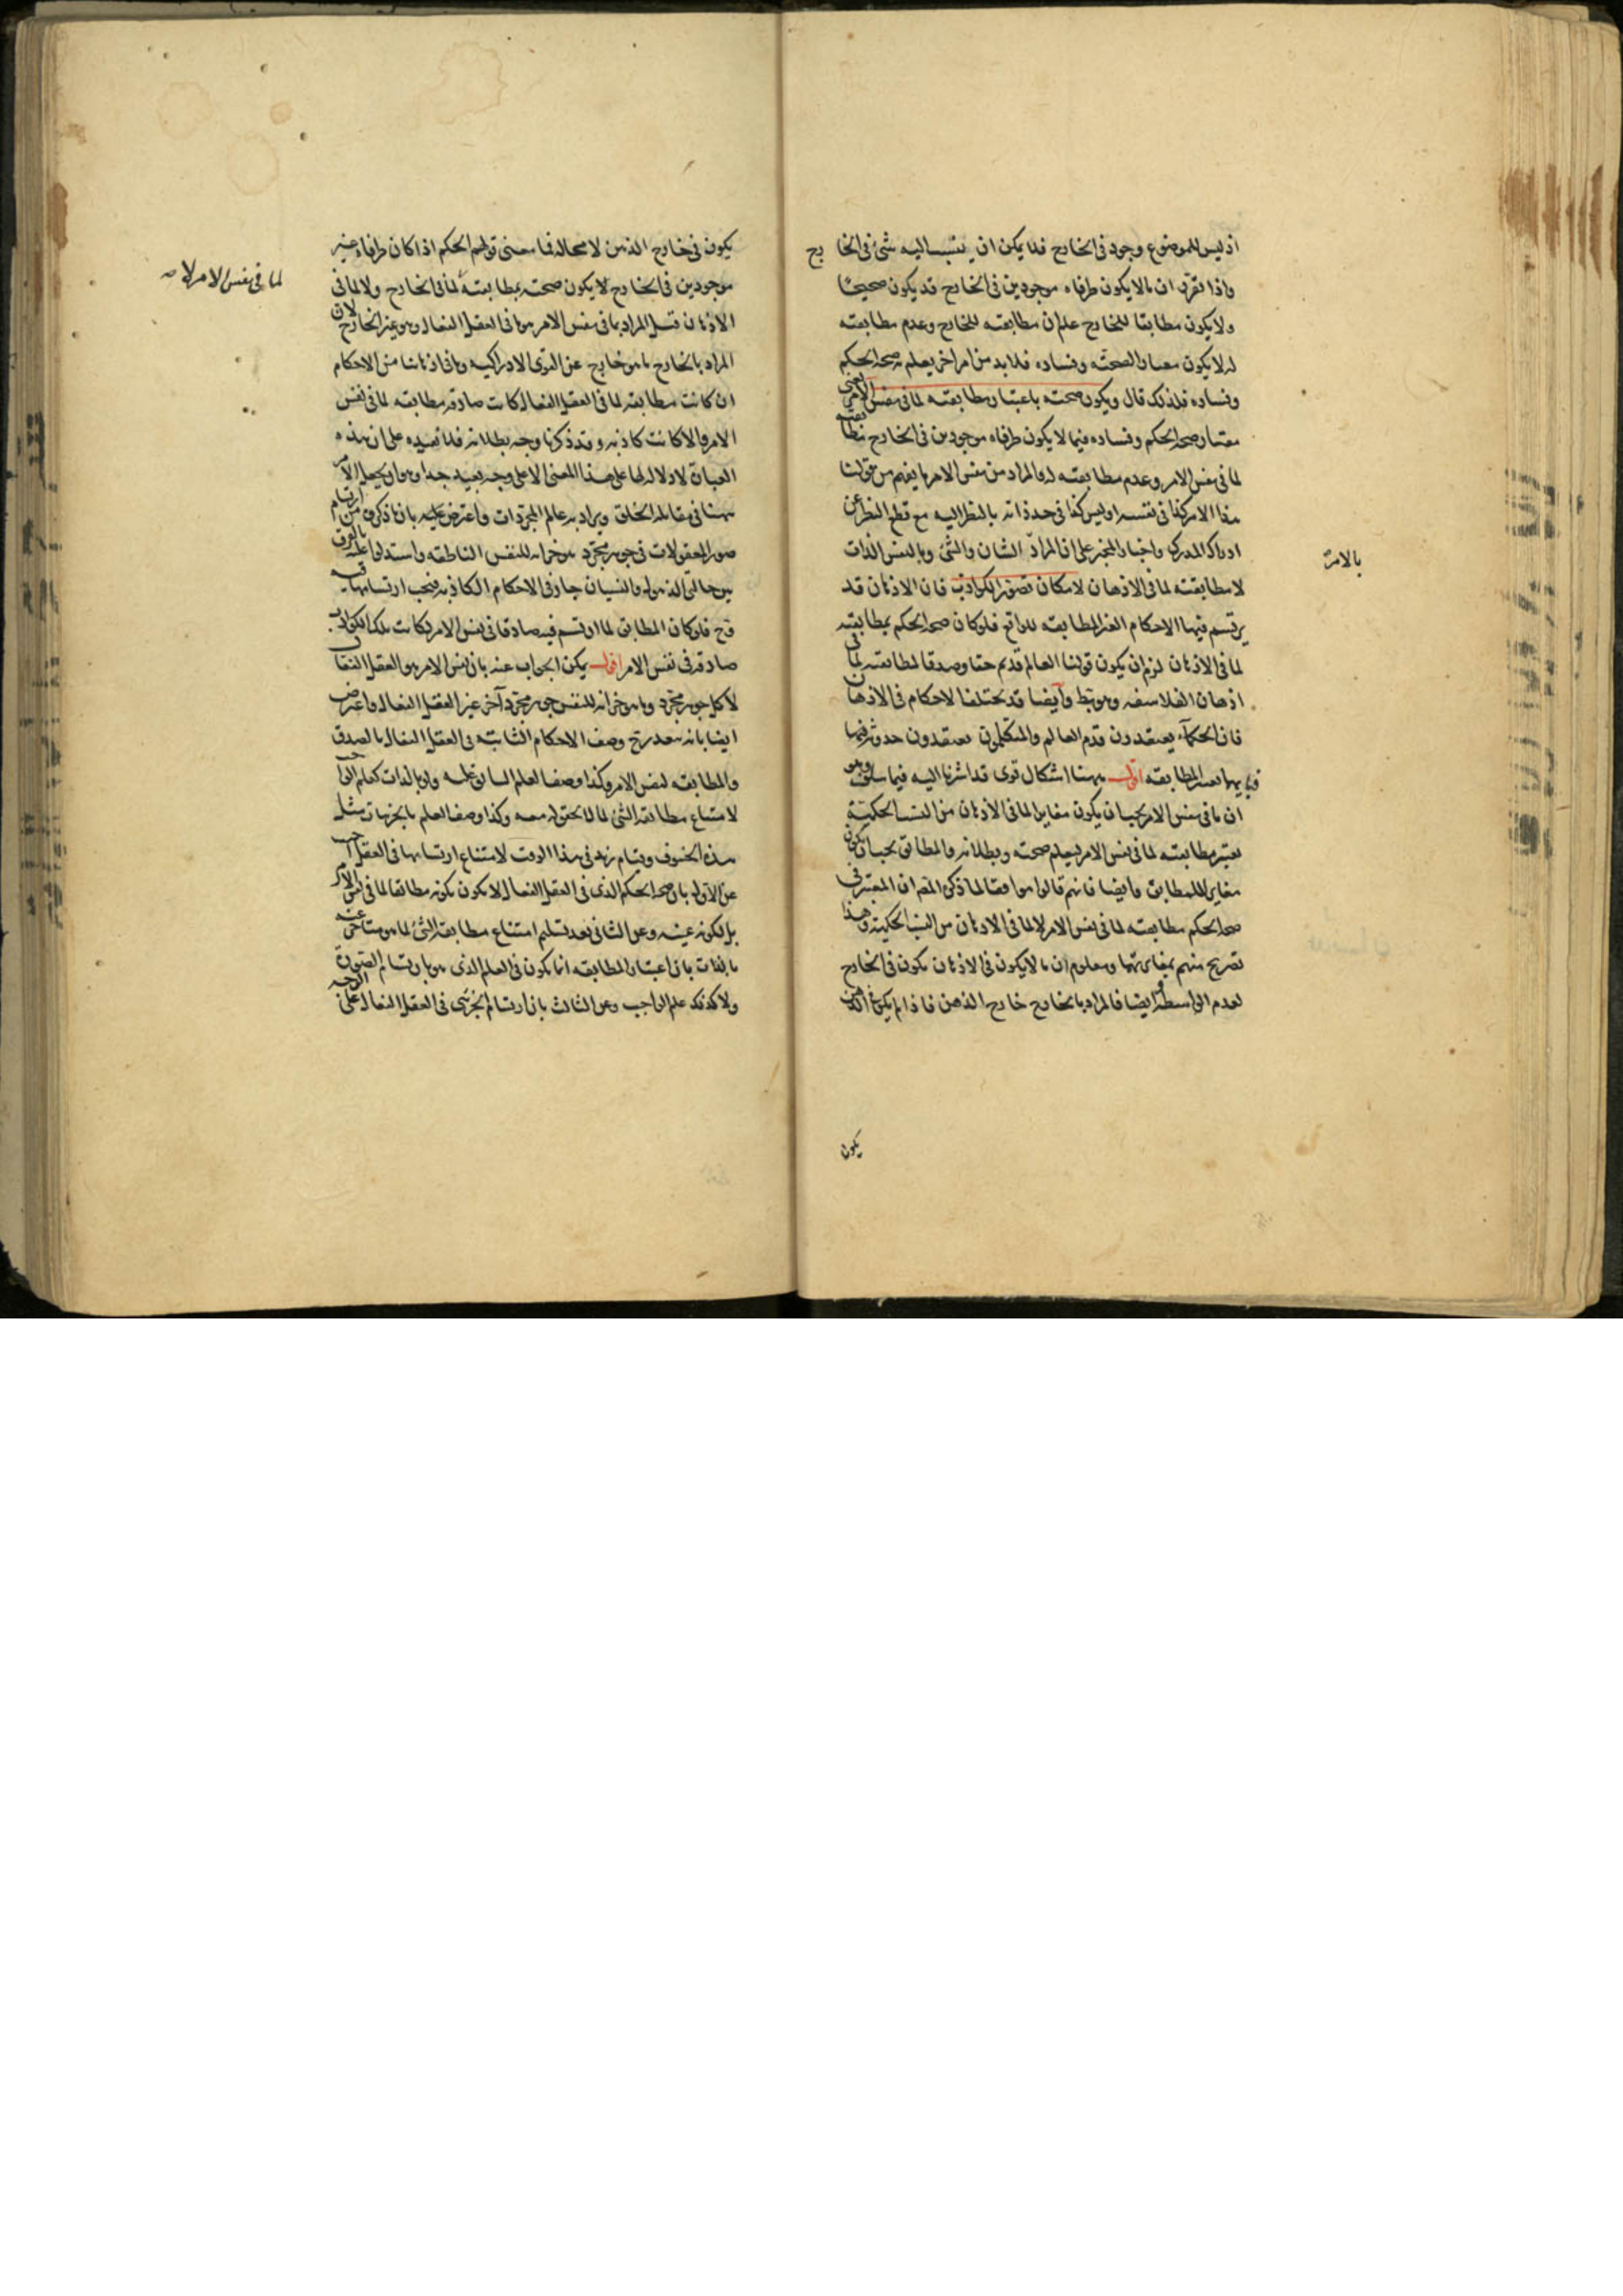 اذ ليس للموضوع وجود فى الخارج فلا يمكن ان ينتسب اليه شئ فى الخارج
واذا تقرر ان ما لا يكون طرفاه موجودين فى الخارج قد يكون صحيحًا
ولا يكون مطابقا للخارج علم ان مطابقته للخارج وعدم مطابقته
له لا يكون معيار الصحته وفساده فلا بد من امر اخر يعلم به صحة الحكم
وفساده فلذلك قال ويكون صحته باعتبار مطابقته لما فى نفس الامر يعنى
معيار صحة الحكم وفساده فيما لا يكون طرفاه موجودين فى الخارج مطابقته
لما فى نفس الامر وعدم مطابقته له والمراد من نفس الامر ما يفهم من قولنا
هذا الامر كذا فى نفسه او ليس كذا فى حد ذاته بالنظر اليه مع قطع النظر عن
ادراك المدرك واخبار المخبر على ان المراد الشان والشئ وبالنفس الذات
بالامر
لا مطابقته لما فى الاذهان لامكان تصور الكواذب فان الاذهان قد
يرتسم فيها الاحكام الغير المطابقه للواقع فلو كان صحة الحكم بمطابقته
لما فى الاذهان لزم ان يكون قولنا العالم قديم حقا وصدقا لمطابقته لما فى
اذهان الفلاسفه وهو بط وايضا قد يختلف الاحكام فى الاذهان
فان الحكماء يعتقدون قدم العالم والمتكلمون يعتقدون حدوثه فيما
فبايهما يعتبر المطابقه اقول ههنا اشكال قوى قد اشرنا اليه فيما سلف وهو
ان ما فى نفس الامر يجب ان يكون مغايرا لما فى الاذهان من النسب الحكمية
يعتبر مطابقته لما فى نفس الامر ليعلم صحته وبطلانه والمطابق يجب ان يكون
مغايرا للمطابق وايضا فانهم قالوا موافقا لما ذكره المص ان المعتبر فى
صحة الحكم مطابقته لما فى نفس الامر لا لما فى الاذهان من النسب الحكمية وهذا
تصريح منهم بمغايرتهما ومعلوم ان ما لا يكون فى الاذهان يكون فى الخارج
لعدم الواسطه وايضا فالمراد بالخارج خارج الذهن فاذا لم يكن فى الذهن
يكون
يكون فى خارج الذهن لا محاله فما معنى قولهم الحكم اذا كان طرفاه غير
موجودين فى الخارج لا يكون صحته بمطابقته لما فى الخارج ولا لما فى
لما فى نفس الامر لا صح
الاذهان قيل المراد بما فى نفس الامر ما فى العقل الفعال وهو غير الخارج لان
المراد بالخارج ما هو خارج عن القوى الادراكيه وما فى اذهاننا من الاحكام
ان كانت مطابقه لما فى العقل الفعال كانت صادقه مطابقه لما فى نفس
الامر والا كانت كاذبه وقد ذكرنا وجه بطلانه فلا نعيده على ان هذه
العبارة لا دلاله لها على هذا المعنى الا على وجه بعيد جدا وهو ان يجعل الامر
ههنا فى مقابله الخلق ويراد به عالم المجردات واعترض عليه بان ما ذكروه من ارتسام
صور المعقولات فى جوهر مجرد هو خزانه للنفس الناطقه واستدلوا عليه بالفرق
بين حالتى الذهول والنسيان جار فى الاحكام الكاذبه فيجب ارتسامها فيه
وح فلو كان المطابق لما ارتسم فيه صادقا فى نفس الامر لكانت تلك الكواذب
صادقه فى نفس الامر اقول يمكن الجواب عنه بان نفس الامر هو العقل الفعال
لا كل جوهر مجرد وما هو خزانه للنفس جوهر مجرد آخر غير العقل الفعال واعترض
ايضا بانه يتعذر ح وصف الاحكام الثابته فى العقل الفعال بالصدق
والمطابقه لنفس الامر وكذا وصف العلم السابق عليه ولو بالذات كعلم الواجب
لامتناع مطابقه الشئ لما لا تحقق له معه وكذا وصف العلم بالجزئيات مثل
هذه الخسوف وقيام زيد فى هذا الوقت لامتناع ارتسامها فى العقل اجيب
عن الاول بان صحة الحكم الذى فى العقل الفعال لا يكون بكونه مطابقا لما فى نفس الامر
بل لكونه عينه وعن الثانى بعد تسليم امتناع مطابقه الشئ لما هو متاخر عنه
بالذات بان اعتبار المطابقه انما يكون فى العلم الذى هو بارتسام الصورة
ولا كذلك علم الواجب وعن الثالث بان ارتسام الجزئى فى العقل الفعال على الوجه